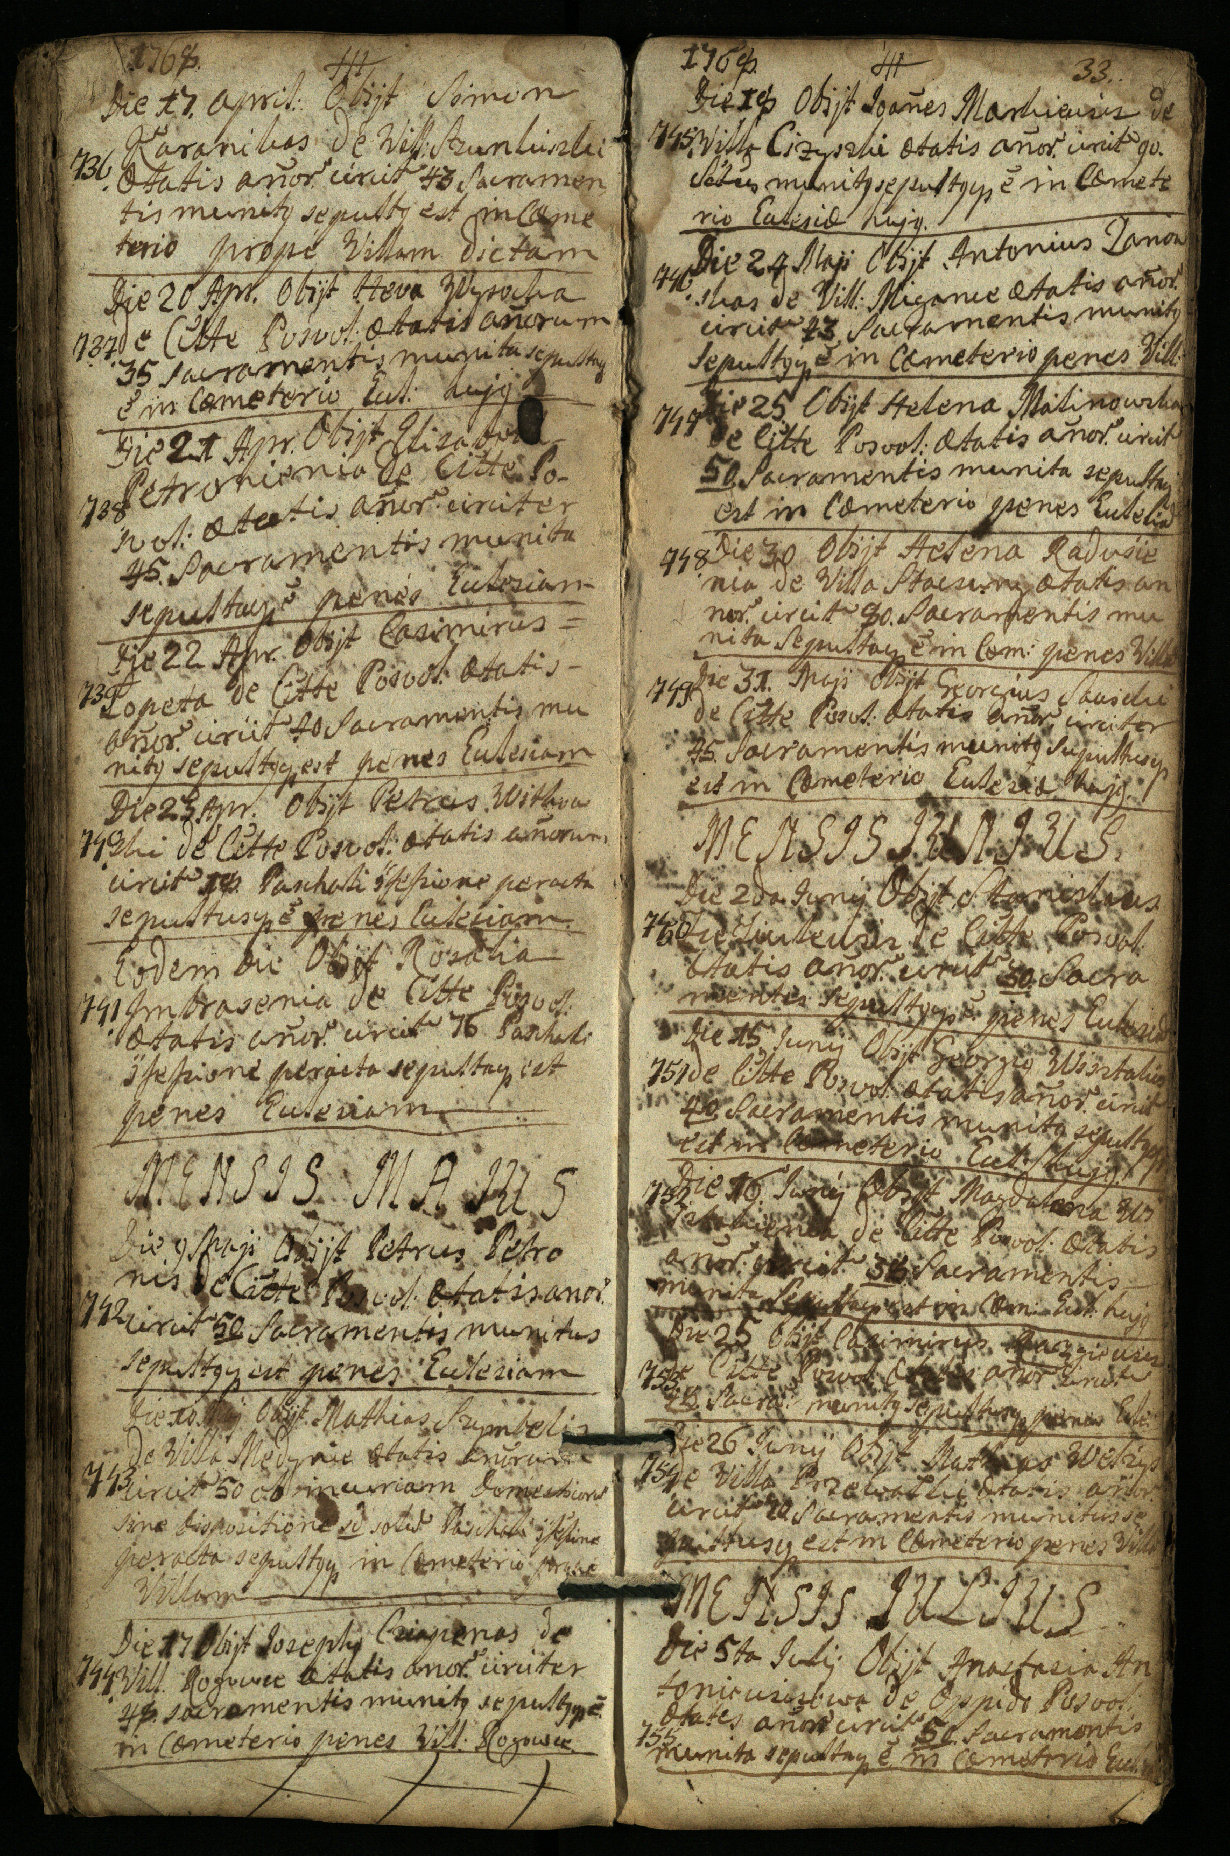 1768.
Die 17. April: Obijt Simon
Karanikas de Vill: Szunluszki
736. Ætatis añor. circit 43 Sacramen
tis munitq sepultq est in Cæme
terio prope Villam dictam
Die 20 Apr. Obijt Heva Wysocka
737. de Citte Posvol: ætatis añorum
35 Sacramentis munita sepultaq
ē in Cæmeterio Eccl. hujq
Die 21 Apr. Obijt Elizabeta
Petronienia de Citte Po-
738 svol: ætatis añor. circiter
45. Sacramentis munita
sepultaq ē penes Ecclesiam
Die 22 Apr. Obijt Casimirus =
739 Lopeta de Citte Posvol: ætatis
añor. circit 40 Sacramentis mu
nitq sepultq est penes Ecclesiam
Die 23 Apr. Obijt Petrus Witkow
740 ski de Citte Posvol: ætatis añorum
circit 18. Paschali gfessione peracta
sepultus ē penes Ecclesiam
Eodem Die Obijt Rosalia
741 Imbrasenia de Citte Posvol:
ætatis añor. circit 76 Paschali
gfessione peracta sepultaq est
penes Ecclesiam
MENSIS MAIUS
Die 9 Maji Obijt Petrus Petro
nis de Citte Posvol: ætatis añor.
742 circit 50 Sacramentis munitus
sepultq est penes Ecclesiam
Die 10 Maij Obijt Mathias Szymbelis
de Villa Medynie ætatis añorum
743 circit 50 ob incuriam Domesticorum
sine dispositione sed solu Paschali gfessione
peracta sepultq in Cæmeterio prope
Villam
Die 17 Obijt Josephq Czaapenas de
744 Vill. Rogowie ætatis añor. circiter
48. sacramentis munitq sepultq ē
in Cæmeterio penes Vill: Rogowie
1768.
33.
Die 18 Obijt Joañes Markiewicz de
745. Villa Cizyszki ætatis añor. circit 90.
munitq sepultq ē in Cæmete
rio Eclesiæ hujq.
Die 24 Maji Obijt Antonius Zanow
746 skas de Vill: Miganie ætatis añor.
circit 43 Sacramentis munitq
Sepultq ē in Cæmeterio penes Vill.
747 Die 25 Obijt Helena Malinowska
de Citte Posvol: ætatis añor. circit
50 Sacramentis munita sepultaq
est in Cæmeterio penes Ecclesiã
748 Die 30 Obijt Helena Radusie
nia de Villa Staczuny ætatis an
nor. circit 80. Sacramentis mu
nita Sepultaq ē in Cœm: penes Villã
749 Die 31. Maji Obijt Georgius Sauscki
de Citte Posvol: ætatis añor. circiter
45. Sacramentis munitq Sepultusq
est in Cæmeterio Ecclesiæ hujq.
MENSIS JUNIUS.
Die 2da Junij Obijt Stanislaus
750 de Citte Posvol:
ætatis añor. circit 50. Sacra
mentis sepultq ē penes Eclesiã
Die 15 Junij Obijt Georgiq Uszstalis
751 de Citte Posvol: ætatis añor. circit
40. Sacramentis munita sepultq
est in Cæmeterio Eccl: hujq.
752 Die 16 Junij Obijt Magdalena Us
stalienia de Citte Posvol: ætatis
añor. circit 38 Sacramentis
munita Sepultaq est in Cœm: Eccl. hujq
Die 25 Obijt Casimirus
753 de Citte Posvol: ætatis añor circit
munitq sepultusq penes Eccle:
Die 26 Junij Obijt Mathias Welzys
754 de Villa Przewalki ætatis añor.
circit Sacramentis munitus se
pultusq est in Cæmeterio penes Villã
MENSIS JULIUS
Die 5ta Julij Obijt Anastasia An
toniewiczowa de Oppido Posvol:
755 ætatis añor circit 50. Sacramentis
munita sepultaq ē in Cæmeterio Eccl: